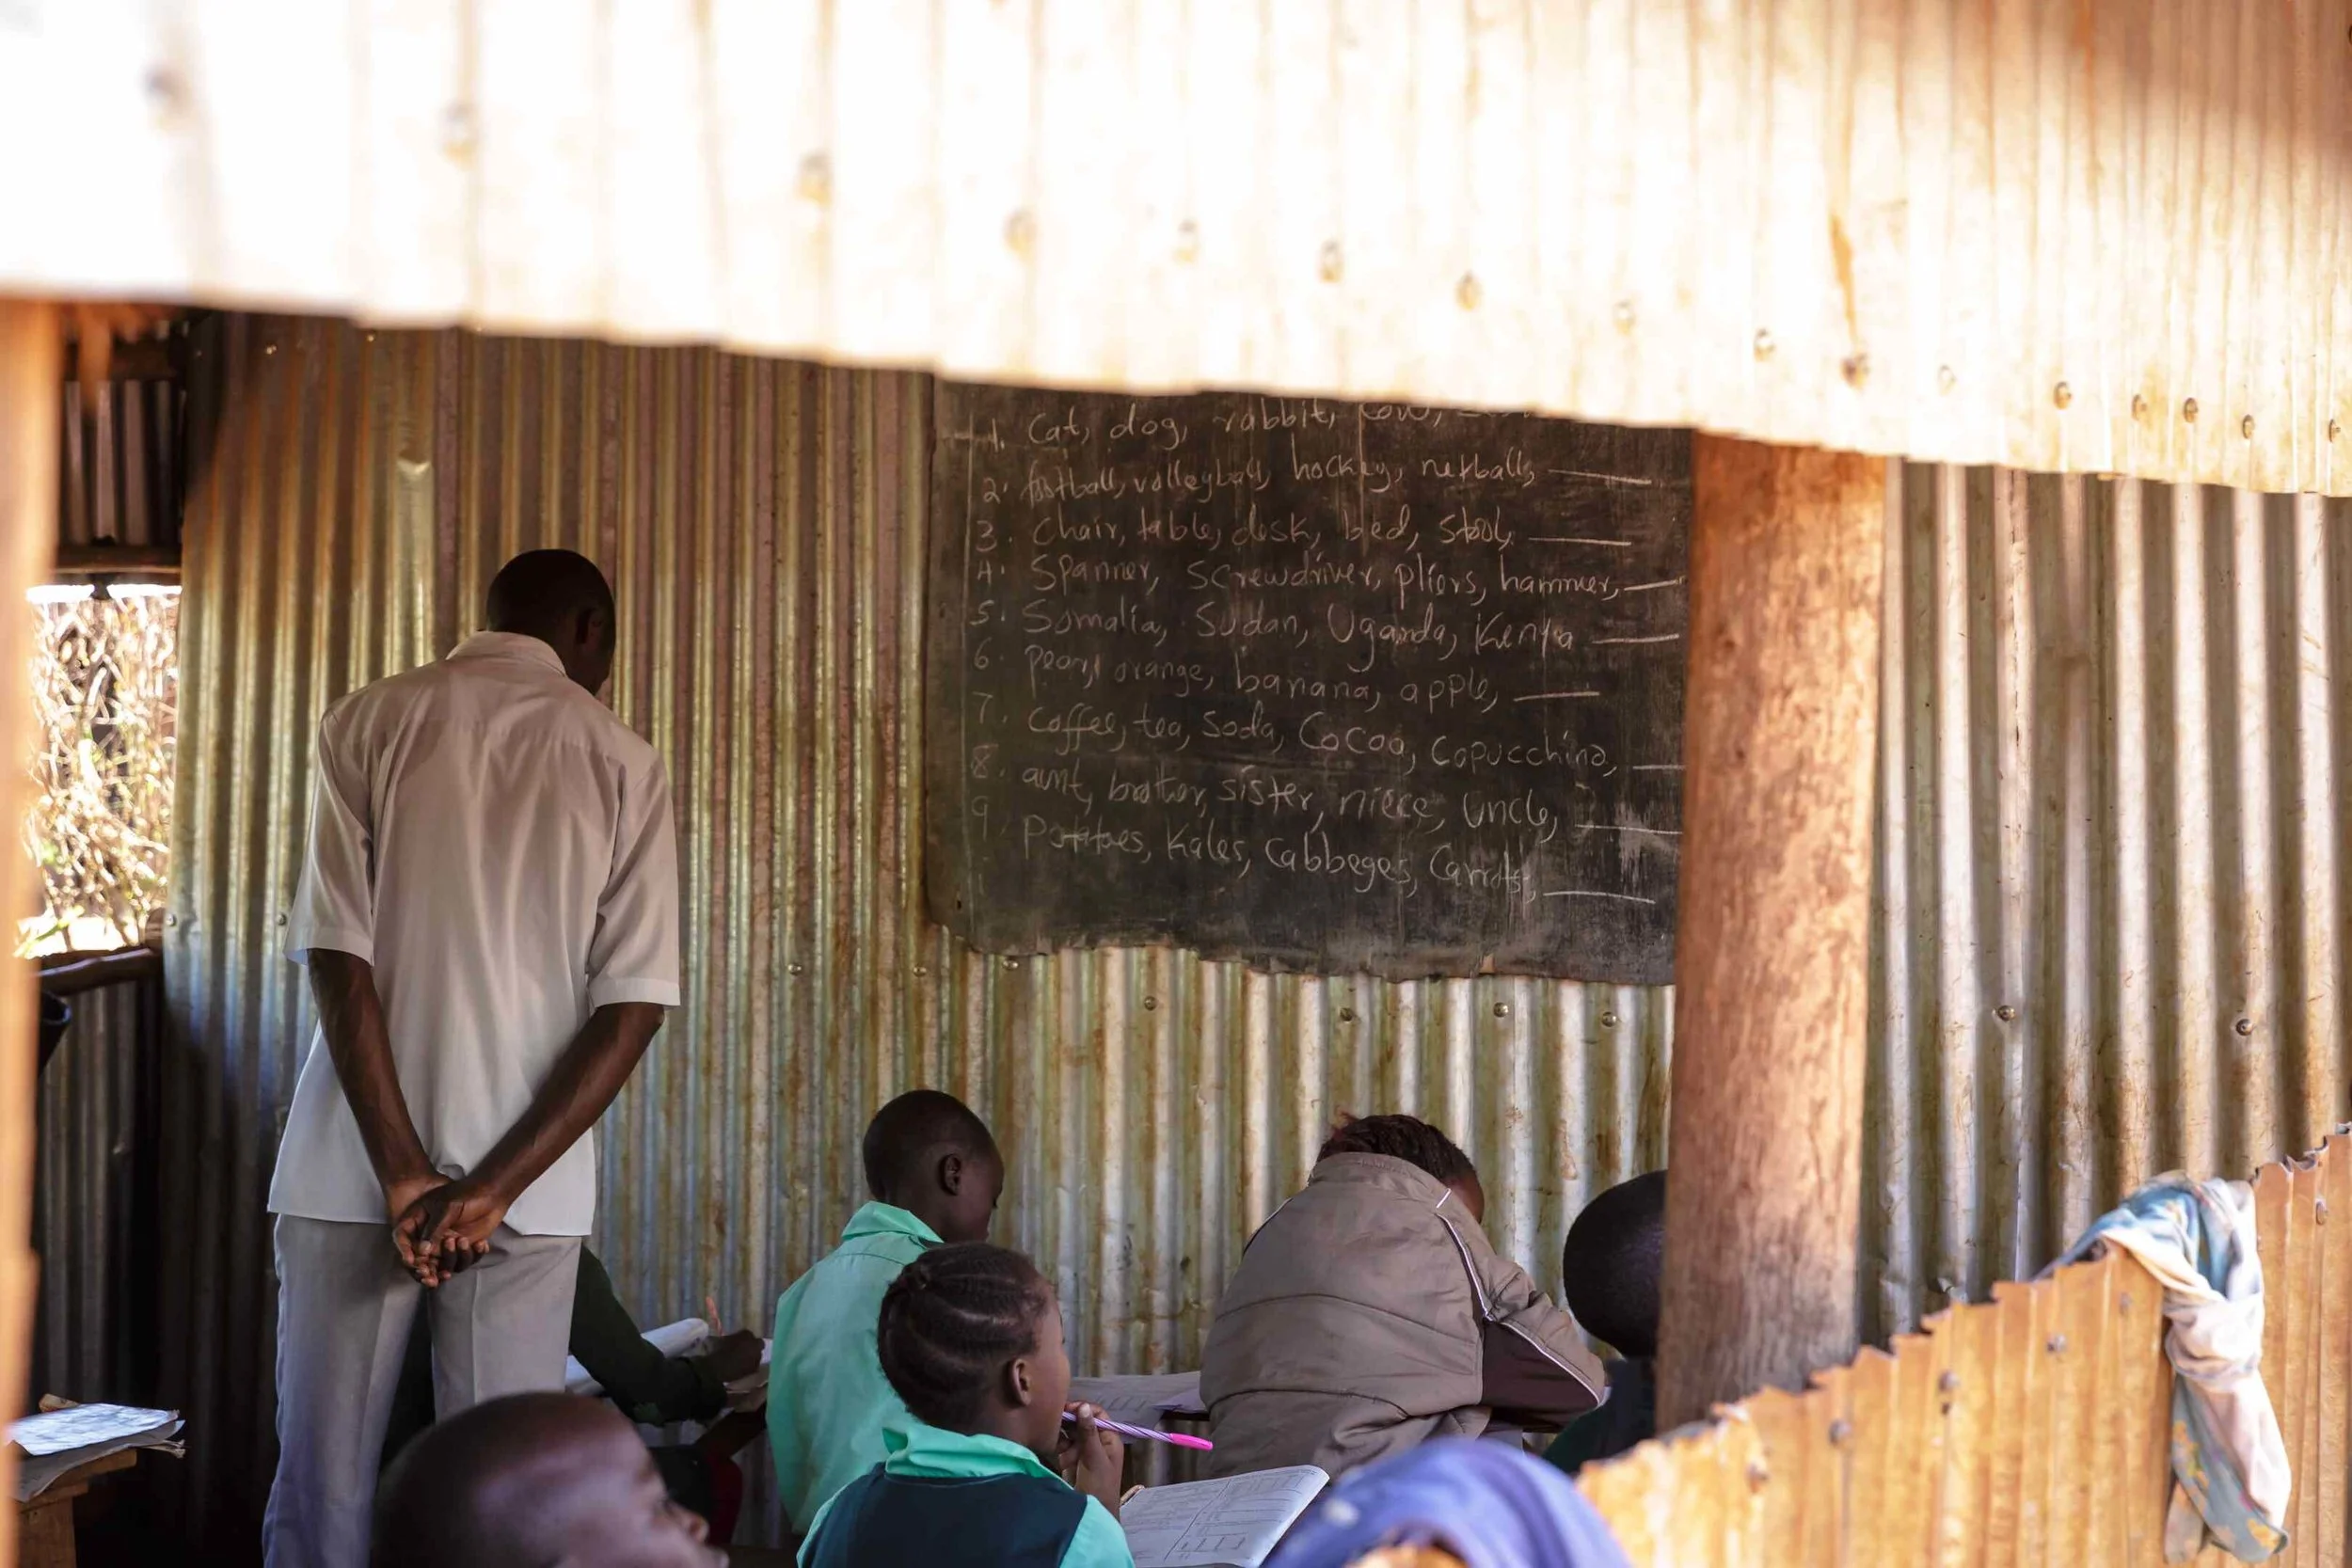 1. Cat, dog, rabbit, cow,
2. football, volleyball, hockey, netball,
3. Chair, table, desk, bed, stool,
4. Spanner, Screwdriver, pliers, hammer,
5. Somalia, Sudan, Uganda, Kenya
6. pear, orange, banana, apple,
7. coffee, tea, Soda, Cocoa, Copucchino,
8. aunt, brother, sister, niece, Uncle,
9. Potatoes, Kales, Cabbeges, Carrots,